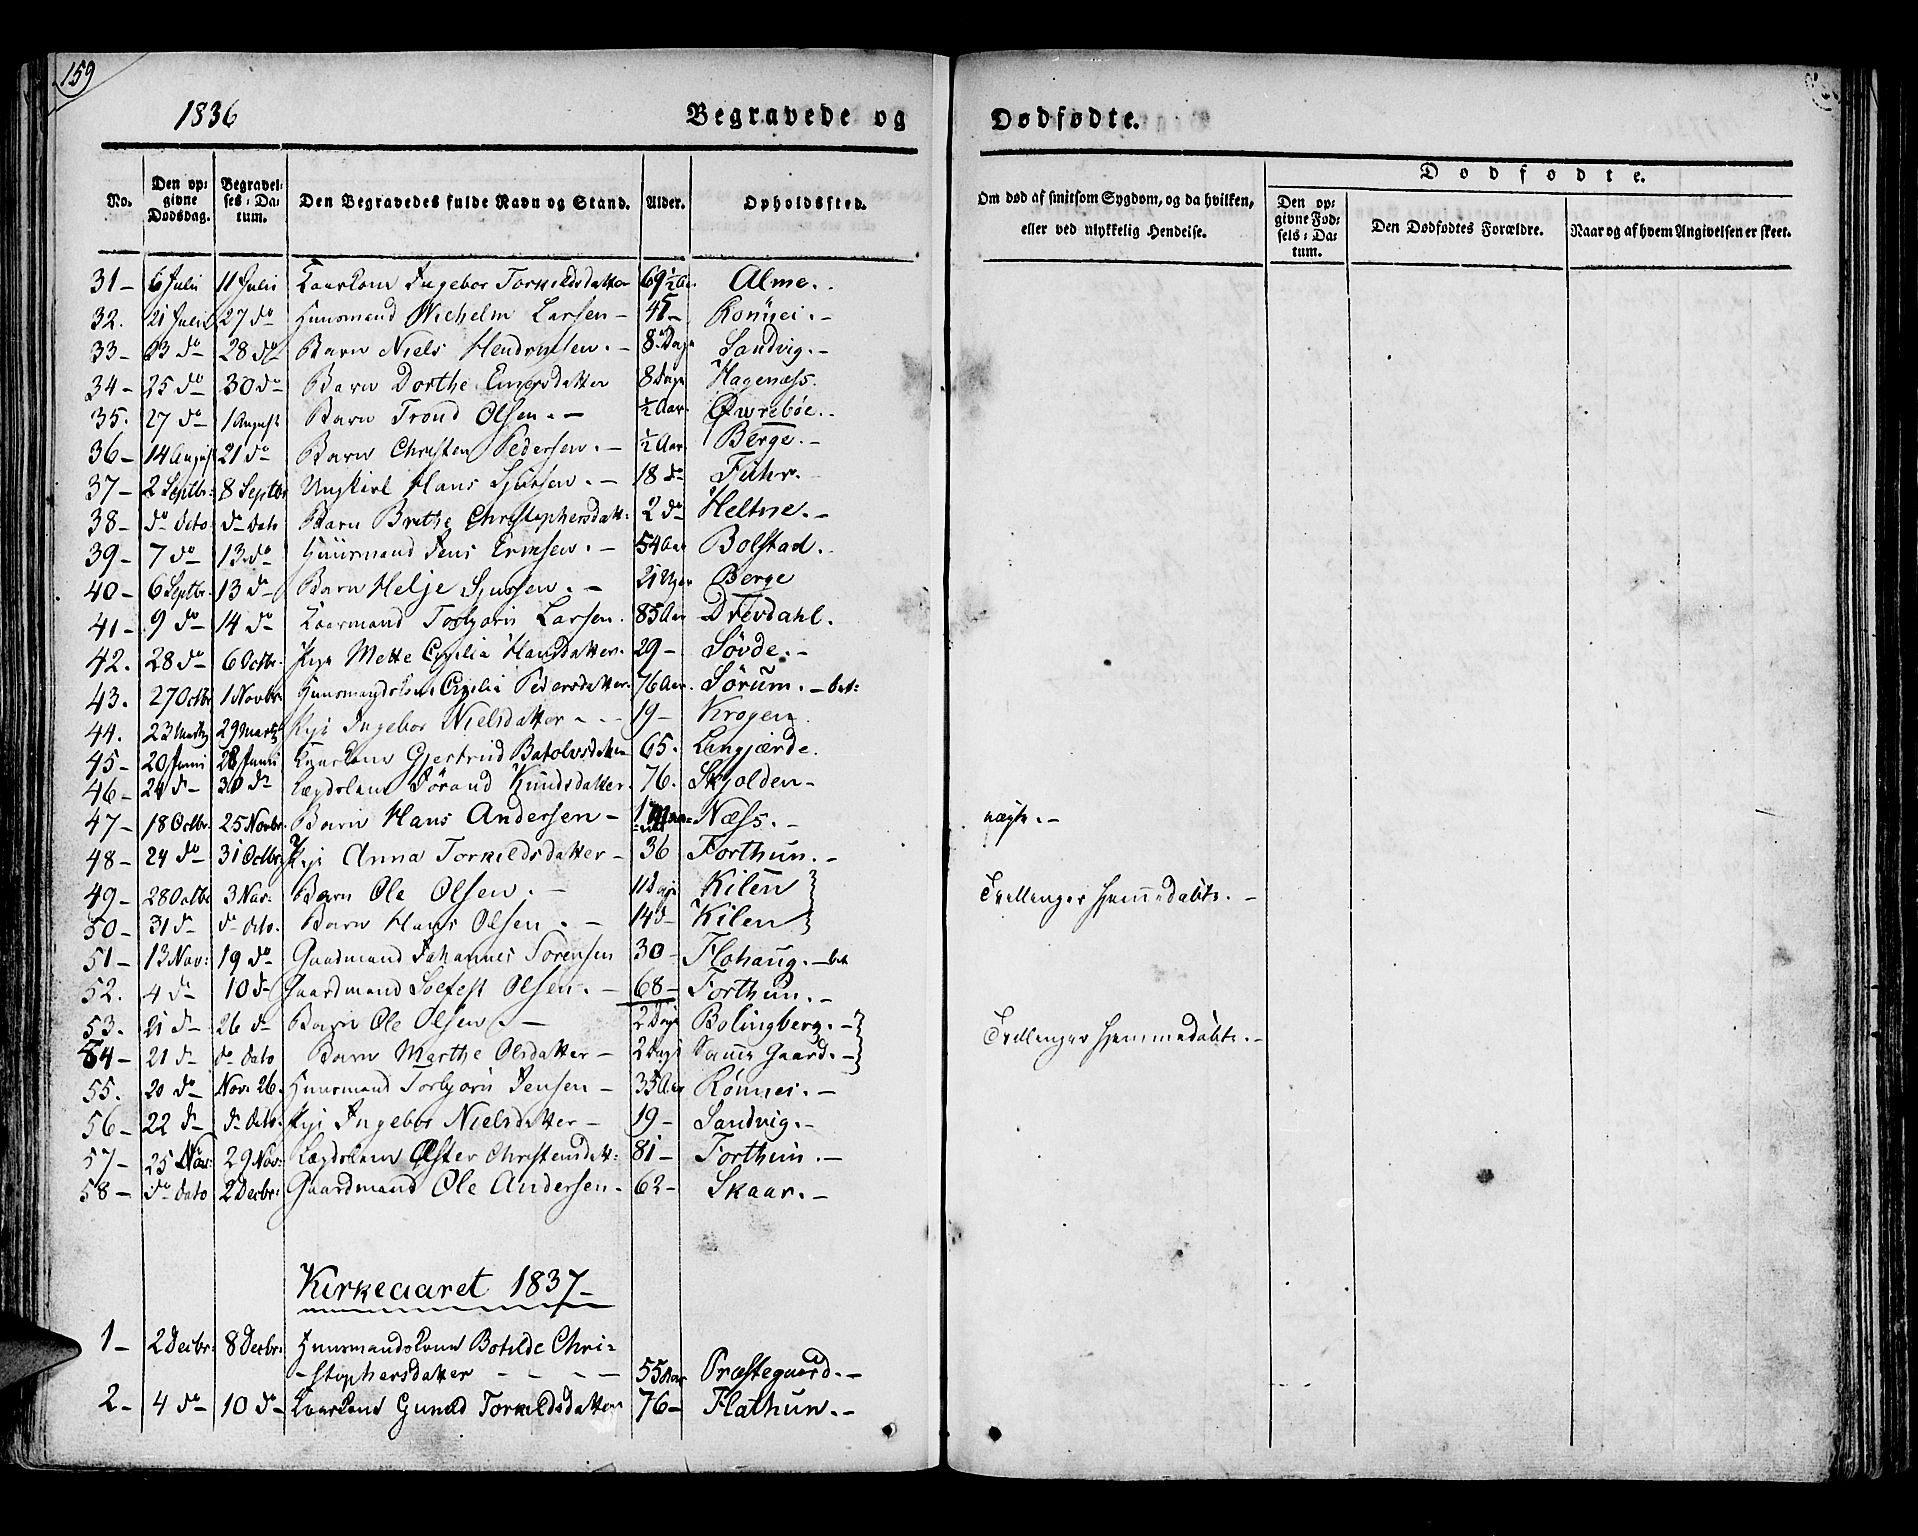 159
1836
Begravede og Dødfødte.
No. Den opgivne Dødsdag. Begravelses-Datum. Den Begravedes fulde Navn og Stand. Alder. Opholdssted. Om død af smitsom Sygdom, og da hvilken, eller ved ulykkelig Hendelse. Dødfødte. Den opgivne Fødsels-Datum. Den Dødfødtes Forældre. Naar og af hvem Angivelsen er skeet.
31 – 6 Juli 11 Juli Kaarkone Ingebor Torkildsdatter 69 ½ Aar Alme. -
32. 21 Juli 27 do Huusmand Wichelm Larsen – 45 – Rönnei. –
33 – 23 do 28 do Barn Niels Hendriksen. – 8 Dage Sandvig. –
34 – 25 do 30 do Barn Dorthe Enersdatter 8 Dage Hagenæss.
35. 27 do 1 August Barn Trond Olsen. – ½ Aar. Øwreböe. -
36 – 14 August 21 do Barn Christen Pedersen. – ½ Aar. Berge. –
37 – 2 Septbr. 8 Septbr Ungkirl Hans Sjursen. – 18 do Fuhr. -
38 – do dato do dato Barn Brithe Christophersdatt: 2 do Heltne. –
39 – 7 do 13 do Huusmand Jens Ermsen. – 54 Aar Bolstad. -
40 – 6 Septbr. 13 do Barn Helje Sjursen. – 21 Uger Berge
41 – 9 do 14 do Kaarmand Torbjørn Larsen. 85 Aar Drevdahl.
42. 28 do 6 Octbr. Pige Mette Cecilia Hansdatter. 29 – Søvde. –
43. 27 Octbr 1 Novbr. Huusmandskone Cecilia Pedersdatter. 76 Aar. Sørum. – bet:
44. 23 Martz 29 Martz Pige Ingebor Nielsdatter - - – 19 – Krogen.
45 – 20 Juni 28 Juni Kaarkone Gjertrud Batolvsdatter 65. Langjærde.
46 – 24 do 30 do Lægdslem Jørand Knudsdatter. 76. Skjolden –
47 – 18 Octbr. 25 Novbr. Barn Hans Andersen – 1 Maaned Næss. – uægte. –
48 – 24 do 31 Octbr. Pige Anna Torkildsdatter – 36 Forthun. –
49 – 28 Octbr 3 Nov. Barn Ole Olsen. – 11 Dage Kilen } Tvillinger hjemmedøbte. –
50 – 31 do do dato. Barn Hans Olsen. – 14 d – Kilen }
51 – 13 Nov: 19 do Gaardmand Johannes Sørensen 30 – Flohaug. – bet
52. 4 do 10 do Gaardmand Solfest Olsen. – 68 – Forthun. –
53. 21 do 26 do Barn Ole Olsen. – 2 Dage Bolingberg. – } Tvillinger hjemmedøbte. –
54 – 21 do do dato Barn Marthe Olsdatter – 2 Dage Samme Gaard. – }
55. 20 do Nov. 26. Huusmand Torbjørn Jensen – 35 Aar Rönnei. –
56 – 22 do do dato. Pige Ingebor Nielsdatter – 19 – Sandvig. –
57 – 25 Nov: 29 Nov: Lægdslem Ester Christensdatt: 81 – Forthun. –
58 – do dato 2 Decbr: Gaardmand Ole Andersen. 62 – Skaar. –
Kirkeaaret 1837 –
1 – 2 Decbr: 8 Decbr: Huusmandskone Botilde Chri=
-stophersdatter - - – – 55 Aar Præstegaard. –
2 – 4 do 10 do Kaarkone Gunild Torkildsdatter 76 – Flathun. –